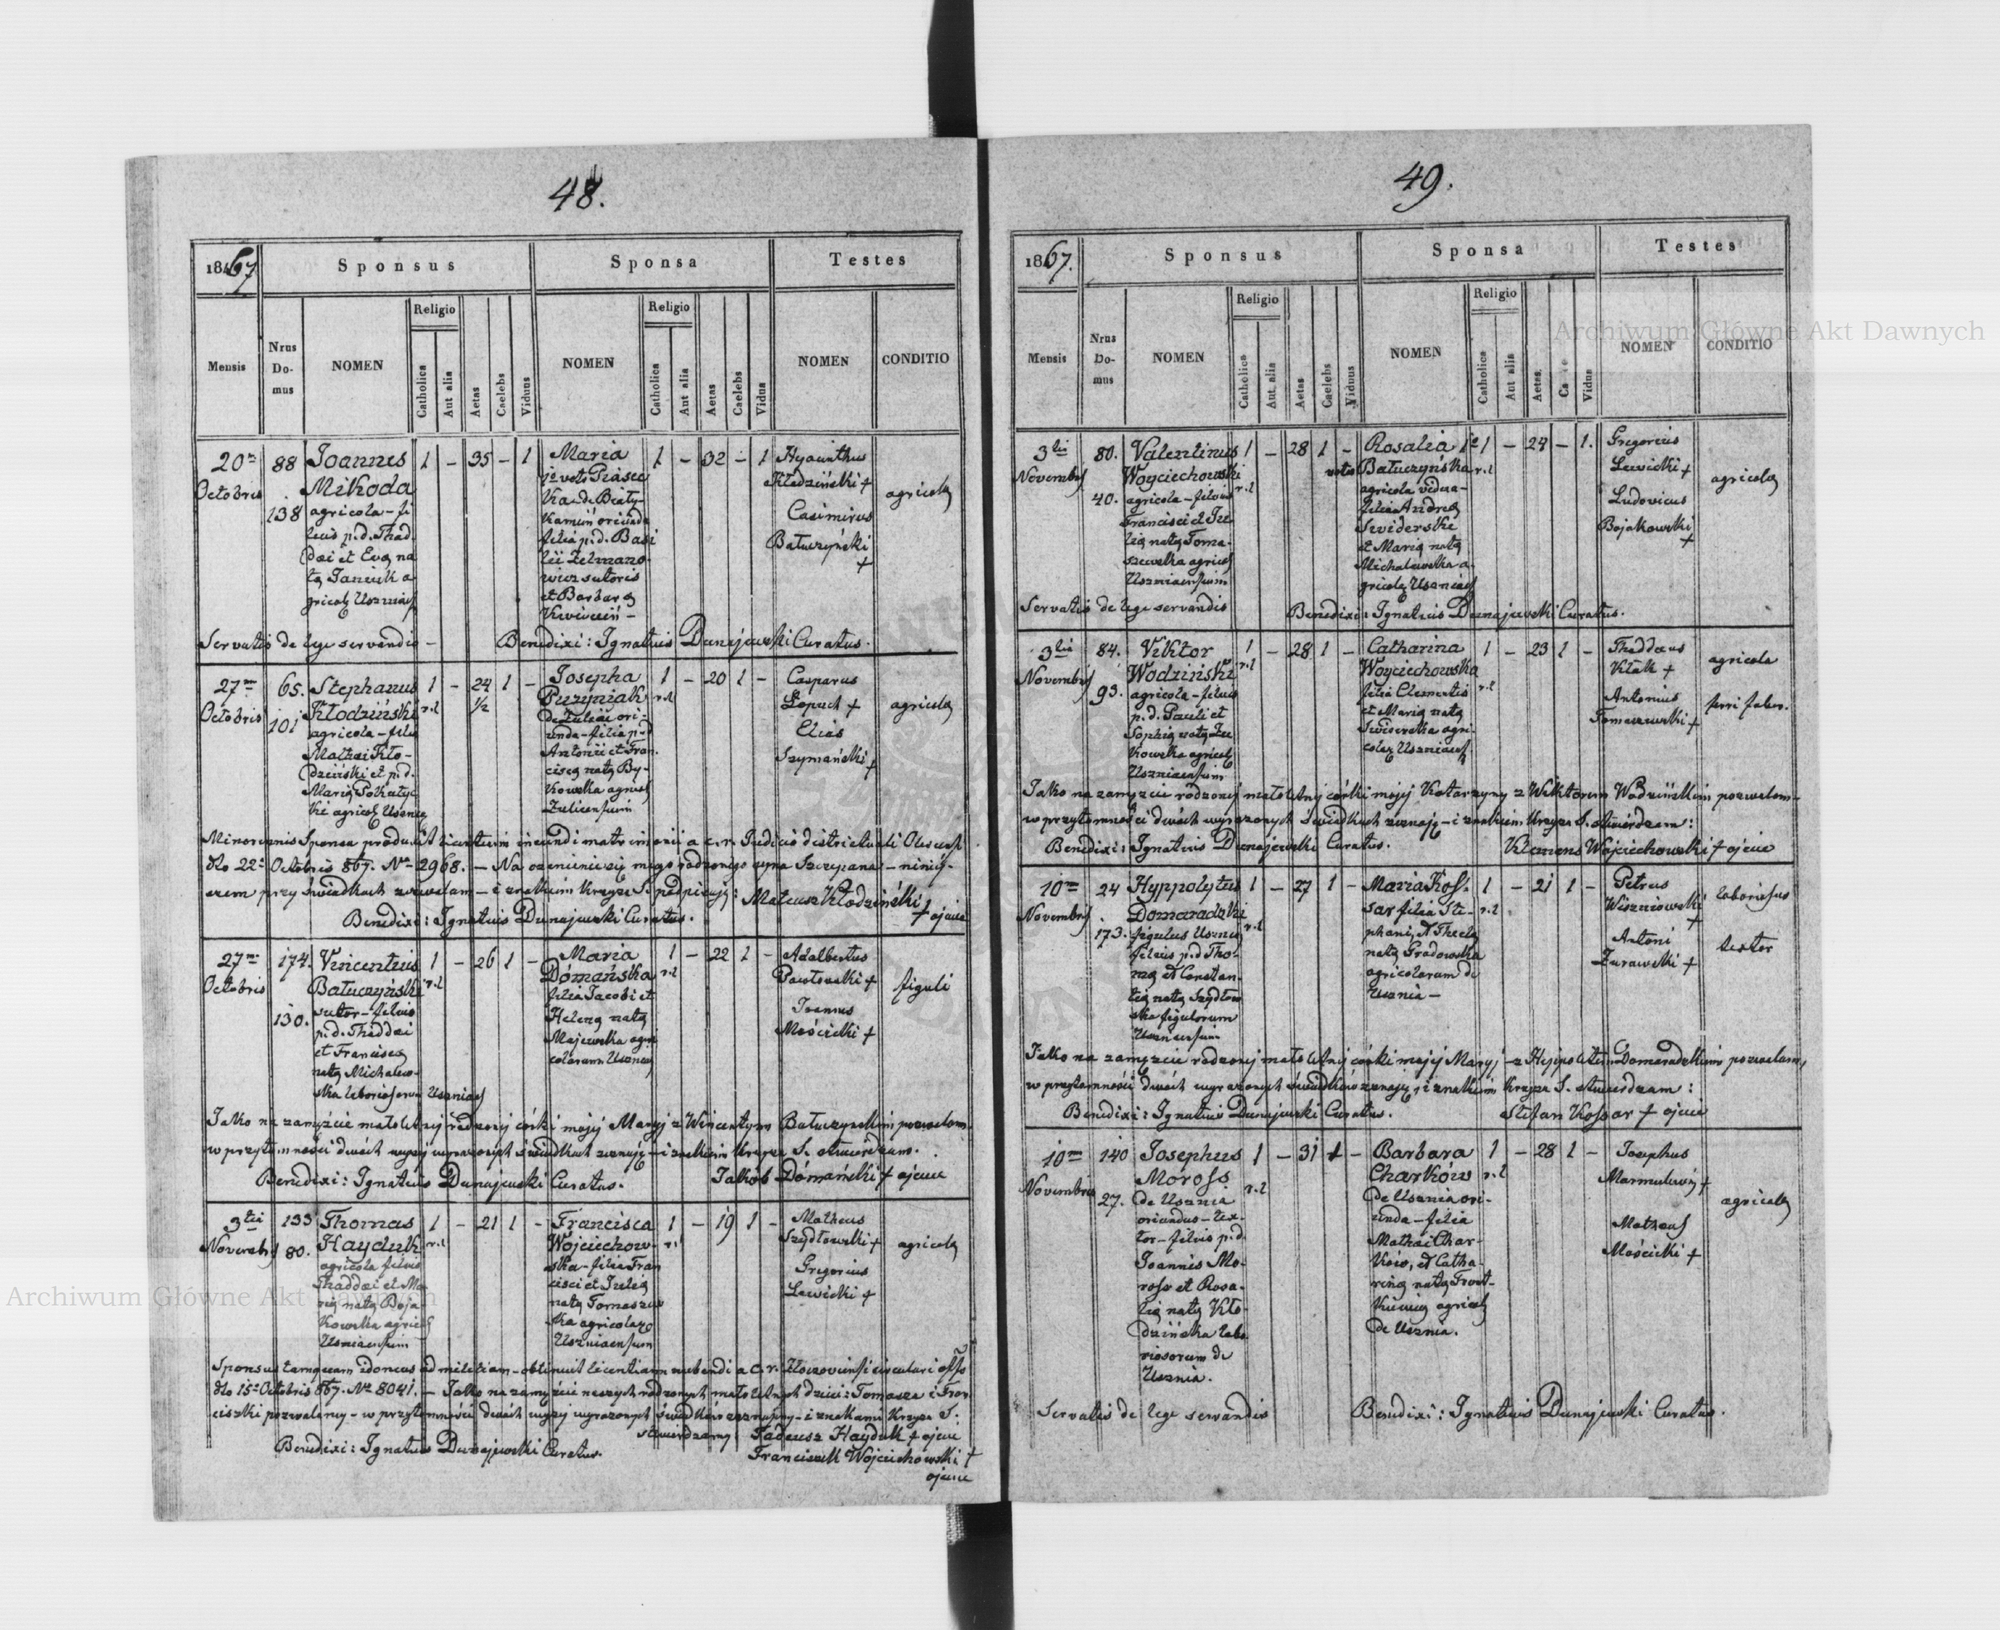 48.
1867
Sponsus
Sponsa
Testes
Mensis
Nrus Do- mus
NOMEN
Religio
Catholica
Aut alia
Aetas
Caelebs
Viduus
NOMEN
Religio
Catholica
Aut alia
Aetas
Caelebs
Vidua
NOMEN
CONDITIO
20
Octobris
88
138
Joannes
Mikoda
agricola - fi
lius p. d. Thad
dei et Eva na
ta Janciuk a
gricol
1 - 35 - 1
Maria
1o voto Piasec
ka de Biały-
Kamuń oriunda
filia p. d. Basi
lii Zelmano
wicz sutoris
et Barbara
1 - 32 - 1
Hyacinthus
Kłodziński +
Casimirus
Batuczyński
+
agricola
Servatis de lege servandis -
Benedixi: Ignatius Dunajewski Curatus.
27
Octobris
65.
101
Stephanus
Kłodziński
agricola - filius
Mathei Kło-
dziński et p. d.
Maria
ki agricol
1 r.l - 24 ½ 1 -
Josepha
Puzyniak
de Zulice ori-
unda - filia p. d
Antonii et Fran
cisca nata By-
kowska agricol
Zulicensium
1 r.l - 20 1 -
Casparus
Łopuch +
Elias
Szymański
+
agricola
Minorennis Sponsa produxit licentiam ineundi matrimonii a c. r. Judicio districtuali Olesco
dto 22 Octobris 867. Nr 2968. - Na ożenienie się mego rodzonego syna Szczepana - niniej-
szem przy świadkach zezwalam - i znakiem krzyża S. podpisuję: Mateusz Kłodziński
+ ojciec
Benedixi: Ignatius Dunajewski Curatus.
27
Octobris
174.
130.
Vincentius
Batuczyński
sutor - filius
p. d. Thaddei
et Francisca
nata Michalew-
ska
1 r.l - 26 1 -
Maria
Domańska
filia Jacobi et
Helena nata
Majewska agri
colarum
1 r.l - 22 1 -
Adalbertus
Pawłowski +
Joannes
Mościcki +
figuli
Jako na zamęźcie małoletnij rodzonij córki mojij Maryj z Wincentym Batuczyńskim pozwalam
w przytomności dwóch wyżej wyrażonych świadkach zeznaję - i znakiem krzyża S. stwierdzam.
Benedixi: Ignatius Dunajewski Curatus.
Jakób Domański + ojciec
3tia
Novembris
133
80.
Thomas
Hayduk
agricola filius
Thaddei et Ma-
ria nata Boja-
kowska agricol
1 r.l - 21 1 -
Francisca
Wojciechow-
ska - filia Fran
cisci et Julia
nata Tomaszew
ska agricolarum
Uszniaensium
1 r.l - 19 1 -
Matheus
Szydłowski +
Gregorius
Lewicki +
agricola
Sponsus tamquam idoneus ad militiam - obtinuit licentiam nubendi a c. r. Złoczoviensi circulari
dto 15 Octobris 867. Nr 8041. - Jako na zamęźcie naszych rodzonych małoletnych dzieci: Tomasza i Fran
ciszki pozwalamy - w przytomności dwóch wyżej wyrażonych świadków zeznajemy - i znakami krzyża S.
stwierdzamy: Tadeusz Hayduk + ojciec
Benedixi: Ignatius Dunajewski Curatus.
Franciszek Wojciechowski +
ojciec
49.
1867.
Sponsus
Sponsa
Testes
Mensis
Nrus Do- mus
NOMEN
Religio
Catholica
Aut alia
Aetas
Caelebs
Viduus
NOMEN
Religio
Catholica
Aut alia
Aetas
Vidua
NOMEN
CONDITIO
3tia
Novembris
80.
40.
Valentinus
Woyciechowski
agricola - filius
Francisci et Ju
lia nata Toma-
szewska agricol
Uszniaensium
1 r.l - 28 1 -
Rosalia 1o
voto Batuczyńska
agricola vidua -
filia Andrea
Swiderski
et Maria nata
Michalewska a-
gricola
1 r.l - 24 - 1.
Gregorius
Lewicki +
Ludovicus
Bojakowski
+
agricola
Servatis de lege servandis
Benedixi: Ignatius Dunajewski Curatus.
3tia
Novembris
84.
93.
Viktor
Wodziński
agricola - filius
p. d. Pauli et
Sophia nata
kowska agricol
Uszniaensium
1 r.l - 28 1 -
Catharina
Woyciechowska
filia Clementis
et Maria nata
agri-
cola
1 r.l - 23 1 -
Thaddeus
Kłak +
Antonius
Tomaszewski +
agricola
ferri faber.
Jako na zamęźcie rodzonej małoletnij córki mojej Katarzyny z Wiktorem Wodzińskim pozwalam -
w przytomności dwóch wyrażonych świadkach zeznaję - i znakiem krzyża S. stwierdzam:
Benedixi: Ignatius Dunajewski Curatus.
Klemens Wojciechowski + ojciec
10
Novembris
24
173.
Hyppolytus
Domaradzki
figulus
filius p. d Tho-
ma et Constan-
tia nata Szydłow
ska figulorum
Uszniensium
1 r.l - 27 1 -
Maria Kos-
sar filia Ste-
phani, et Thecla
nata Gradowska
agricolarum de
Usznia -
1 r.l - 21 1 -
Petrus
Wiszniowski
+
Antoni
Żurawski +
laboriosus
textor
Jako na zamęźcie rodzonej małoletnij córki mojij Maryj - z Hyppolitem Domaradzkim pozwalam,
w przytomności dwóch wyrażonych świadków zeznaję, i znakiem krzyża S. stwierdzam:
Benedixi: Ignatius Dunajewski Curatus.
Stefan Kossar + ojciec
10
Novembris
140
27.
Josephus
Moross
de Usznia
oriundus - tex-
tor - filius p. d.
Joannis Mo-
ross et Rosa-
lia nata Kło-
dzińska labo
riosorum de
Usznia.
1 r.l - 31 1 -
Barbara
Charków
de Usznia ori-
unda - filia
Mathei Char-
ków, et Catha-
rina nata
agricol
de Usznia.
1 r.l - 28 1 -
Josephus
+
Matheus
Mościcki +
agricola
Servatis de lege servandis
Benedixi: Ignatius Dunajewski Curatus.
Archiwum Główne Akt Dawnych
Archiwum Główne Akt Dawnych